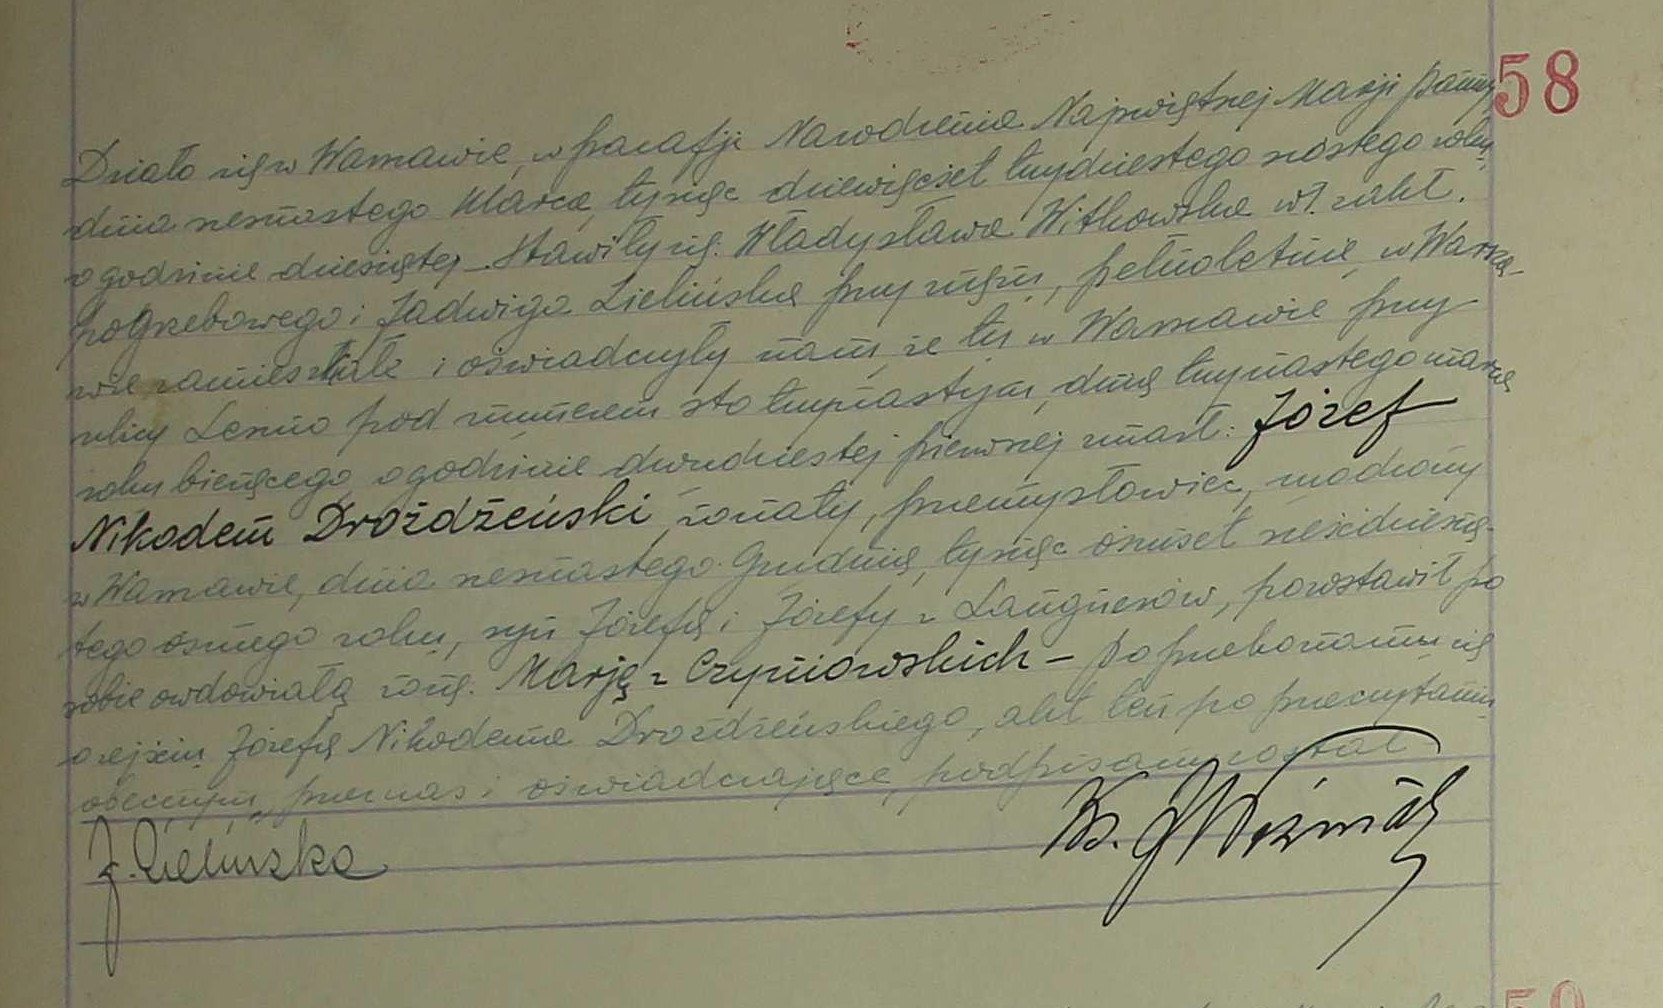 58
Działo się w Warszawie, w parafji Narodzenia Najświętszej Marji Panny,
dnia szesnastego Marca, tysiąc dziewięćset trzydziestego szóstego roku,
o godzinie dziesiątej. Stawiły się: Władysława Witkowska wł. zakł.
pogrzebowego i Jadwiga Zielińska przy mężu, pełnoletnie, w Warsza-
wie zamieszkałe i oświadczyły nam, że tu w Warszawie przy
ulicy Leszno pod numerem sto trzynastym, dnia trzynastego marca
roku bieżącego o godzinie dwudziestej pierwszej zmarł: Józef
Nikodem Drożdżeński, żonaty, przemysłowiec, urodzony
w Warszawie, dnia szesnastego Grudnia, tysiąc ośmset sześćdziesią-
tego ósmego roku, syn Józefa i Józefy z Langnerów, pozostawił po
sobie owdowiałą żonę. Marję z Czyniowskich – Po przekonaniu się
o zejściu Józefa Nikodema Drożdżeńskiego, akt ten po przeczytaniu
obecnym, przez nas i oświadczającą, podpisany został –
J. Zielińska
Ks.